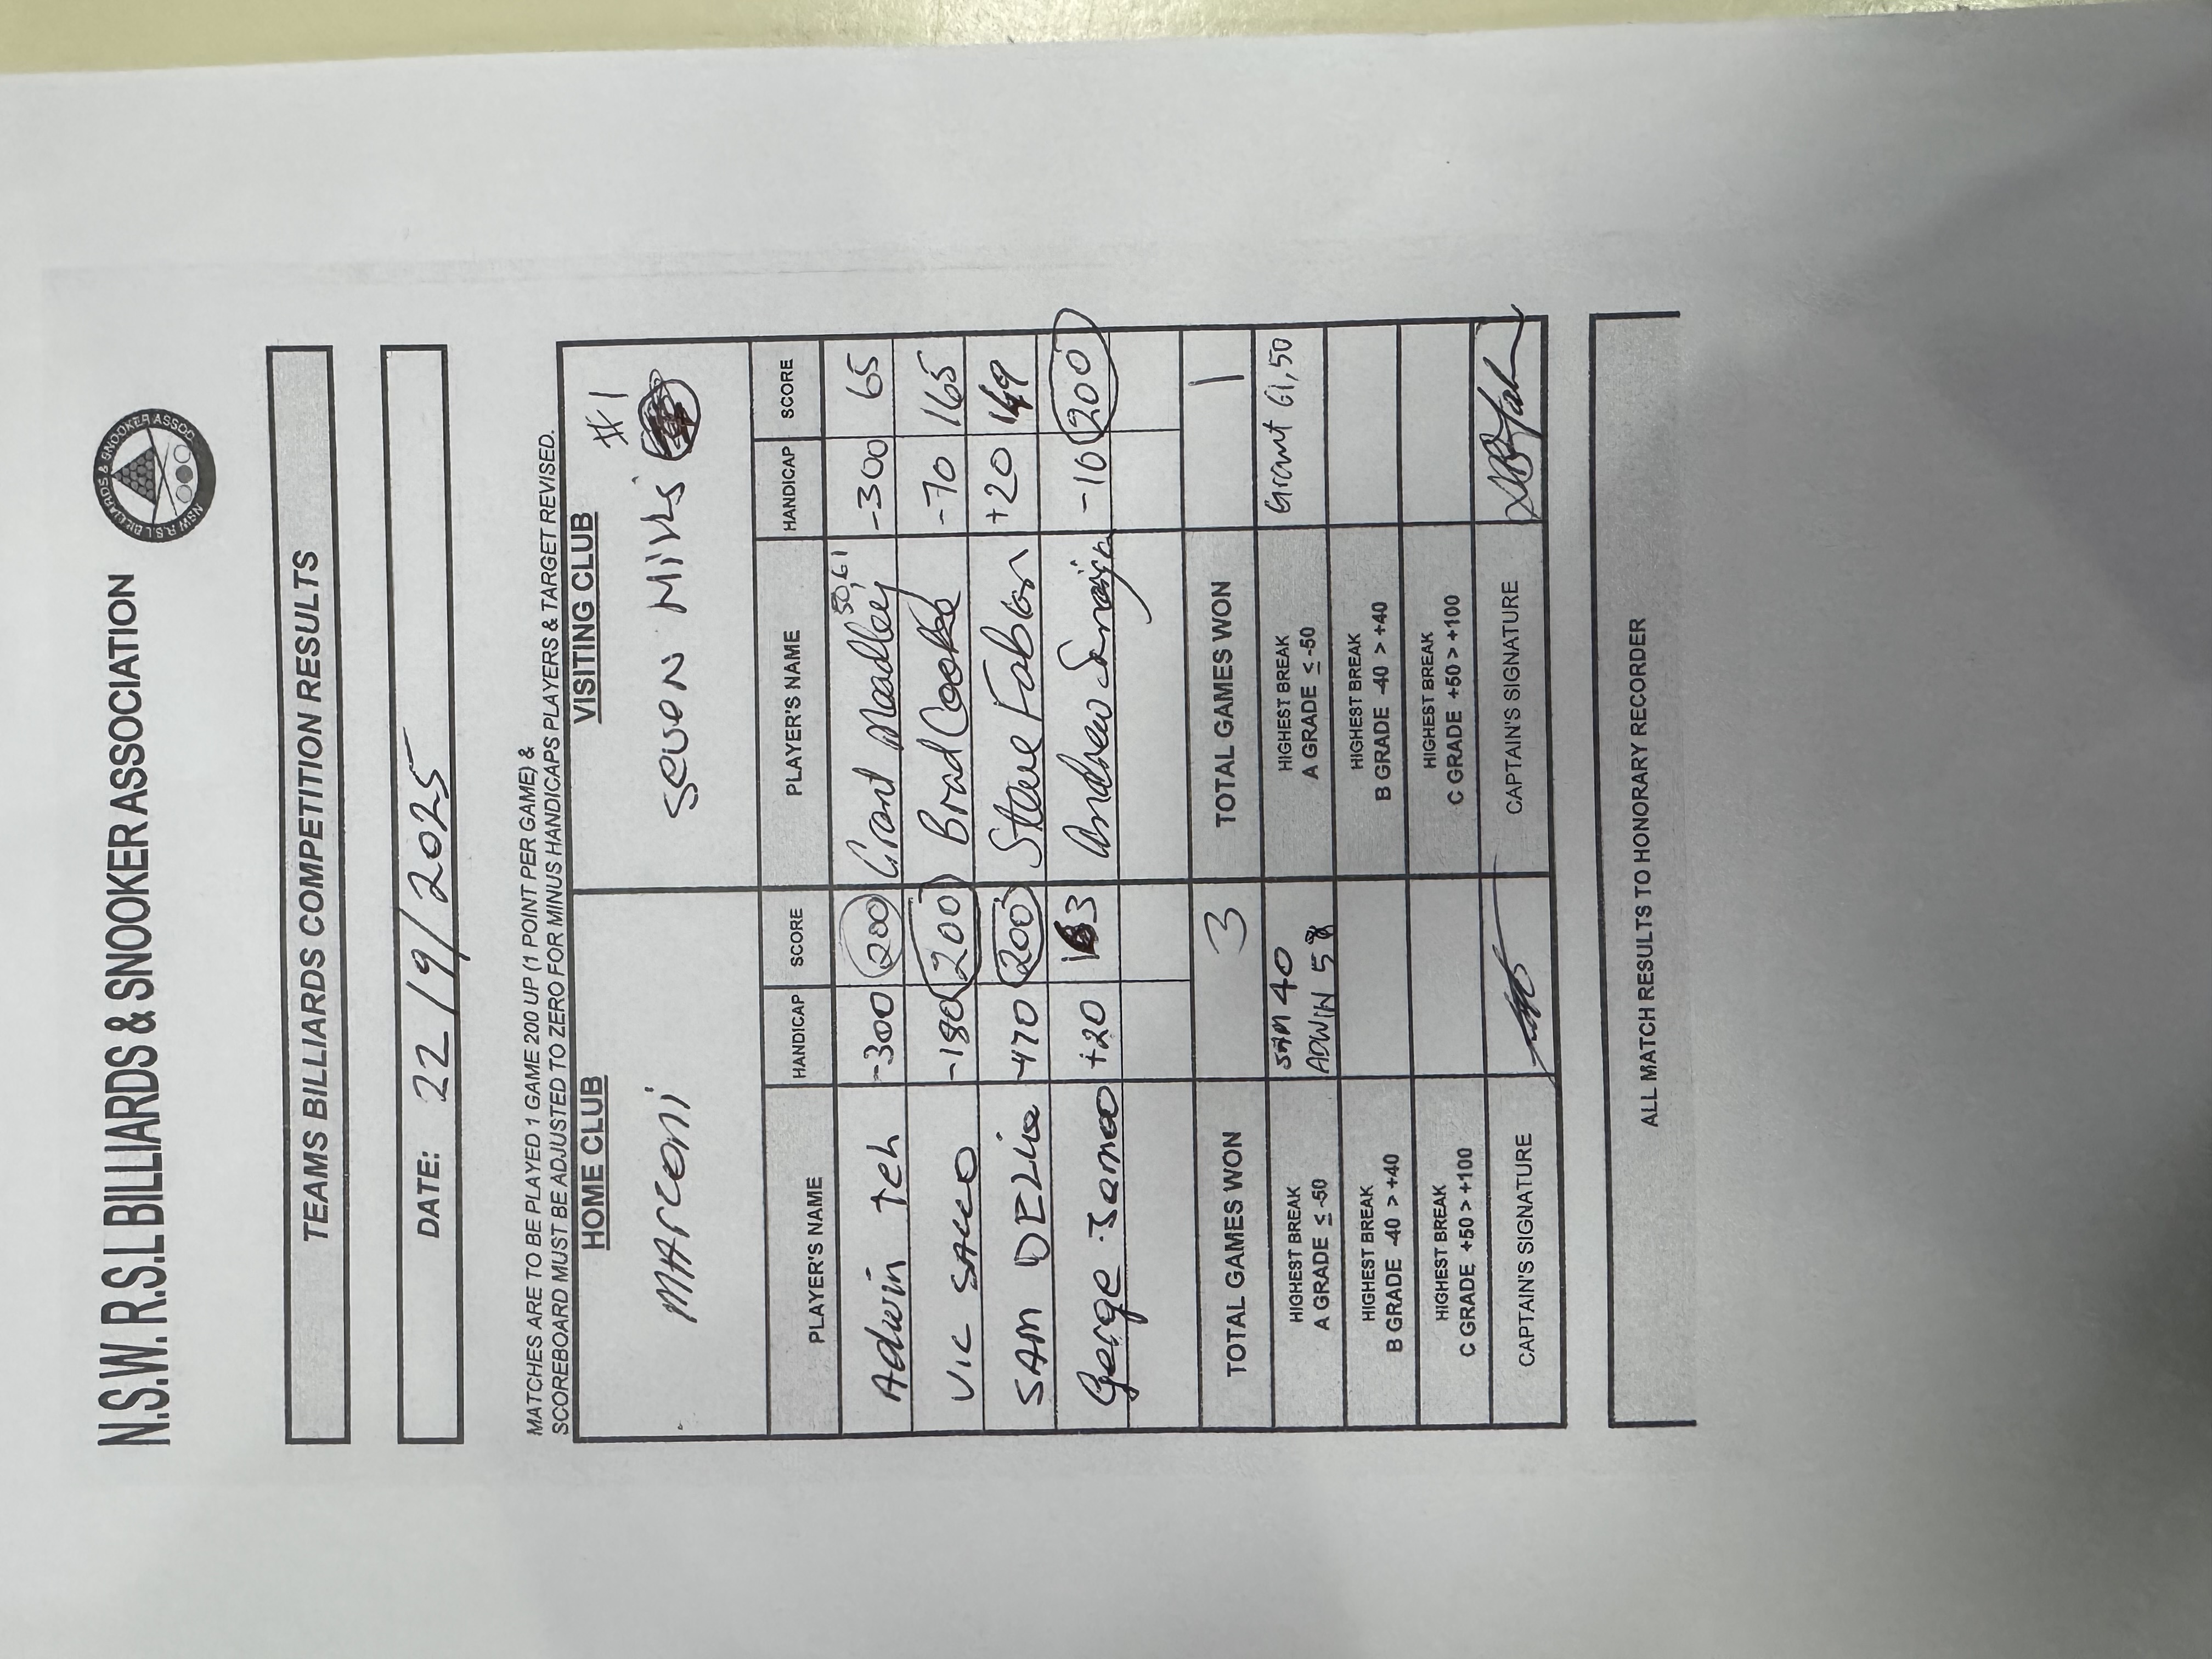 N.S.W. R.S.L BILLIARDS & SNOOKER ASSOCIATION
NSW R.S.L BILLIARDS & SNOOKER ASSOC.
TEAMS BILLIARDS COMPETITION RESULTS
DATE: 22/9/2025
MATCHES ARE TO BE PLAYED 1 GAME 200 UP (1 POINT PER GAME) &
SCOREBOARD MUST BE ADJUSTED TO ZERO FOR MINUS HANDICAPS PLAYERS & TARGET REVISED.
HOME CLUB VISITING CLUB
#1
MArconi Seven Hills
PLAYER'S NAME HANDICAP SCORE PLAYER'S NAME HANDICAP SCORE
50,61
Adwin Teh -300 200 Grant -300 65
Vic SACCO -180 200 Brad Cooke -70 165
SAM DELia 200 Steve Fabian +20 149
George +20 Andrew -10 200
TOTAL GAMES WON 3 TOTAL GAMES WON 1
HIGHEST BREAK SAM 40 HIGHEST BREAK Grant 61,50
A GRADE ≤ -50 ADWIN A GRADE ≤ -50
HIGHEST BREAK HIGHEST BREAK
B GRADE -40 > +40 B GRADE -40 > +40
HIGHEST BREAK HIGHEST BREAK
C GRADE +50 > +100 C GRADE +50 > +100
CAPTAIN'S SIGNATURE CAPTAIN'S SIGNATURE
ALL MATCH RESULTS TO HONORARY RECORDER